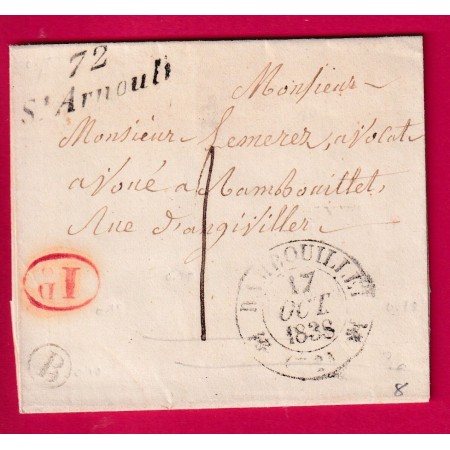 72
St Arnoult
Monsieur
Monsieur Lemerez, avocat
avoué a Rambouillet,
Rue d'angiviller
1
ID
RAMBOUILLET
17
OCT
1838
(72)
B
8